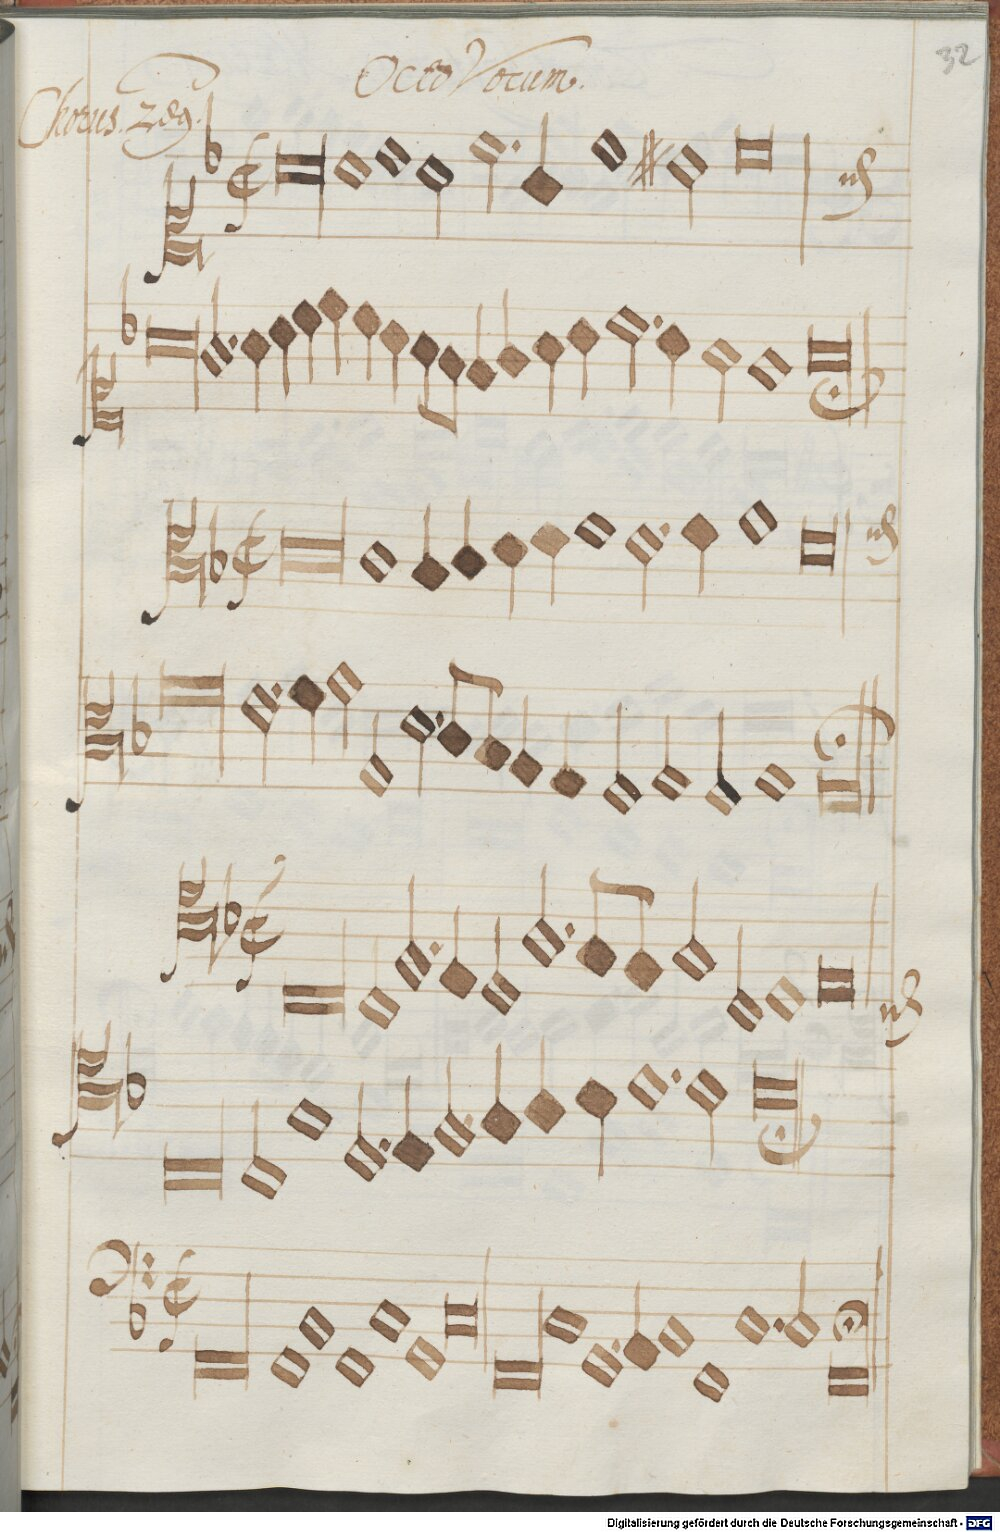 32
Octo Vocum.
Chorus. 2dg.
Digitalisierung gefördert durch die Deutsche Forschungsgemeinschaft - DFG